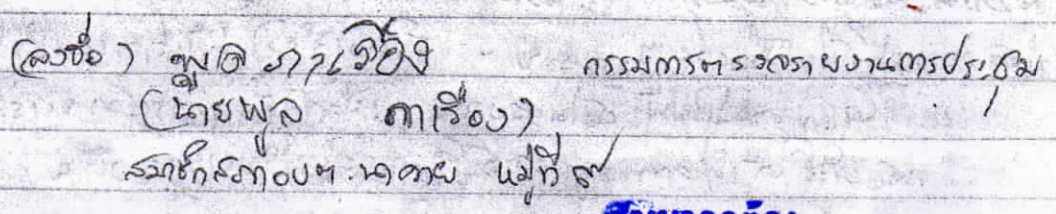 (ลงชื่อ) พูล ภาเรือง กรรมการตรวจรายงานการประชุม
(นายพูล ภาเรือง)
สมาชิกสภาอบต.นาคาย หมู่ที่ ๙